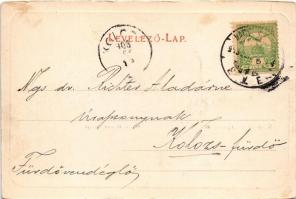 LEVELEZŐ-LAP.
Ngs dr. Richter Aladárné
úrasszonynak
Kolozs-fürdő
Fürdővendéglő